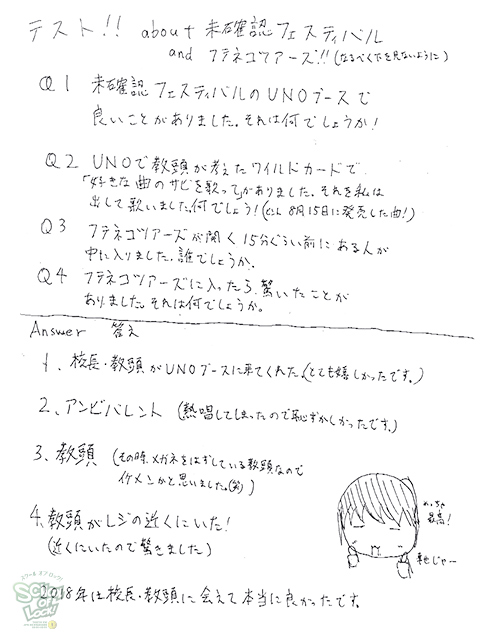 テスト!! about 未確認フェスティバル
and フテネコツアーズ!!(なるべく下を見ないように)
Q1 未確認フェスティバルのUNOブースで
良いことがありました。それは何でしょうか!
Q2 UNOで教頭が考えたワイルドカードで
「好きな曲のサビを歌って」がありました。それを私は
出して歌いました。何でしょう!(ヒント 8月15日に発売した曲!)
Q3 フテネコツアーズが開く15分ぐらい前にある人が
中に入りました。誰でしょうか。
Q4 フテネコツアーズに入ったら驚いたことが
ありました。それは何でしょうか。
Answer 答え
1、校長・教頭がUNOブースに来てくれた。(とても嬉しかったです。)
2、アンビバレント (熱唱してしまったので恥ずかしかったです。)
3、教頭 (その時、メガネをはずしている教頭なので
イケメンかと思いました。(笑))
4、教頭がレジの近くにいた!
(近くにいたので驚きました)
めっちゃ
最高!
じゃー
2018年は校長・教頭に会えて本当に良かったです。
スクールオブロック!
SCHOOL OF LOCK!